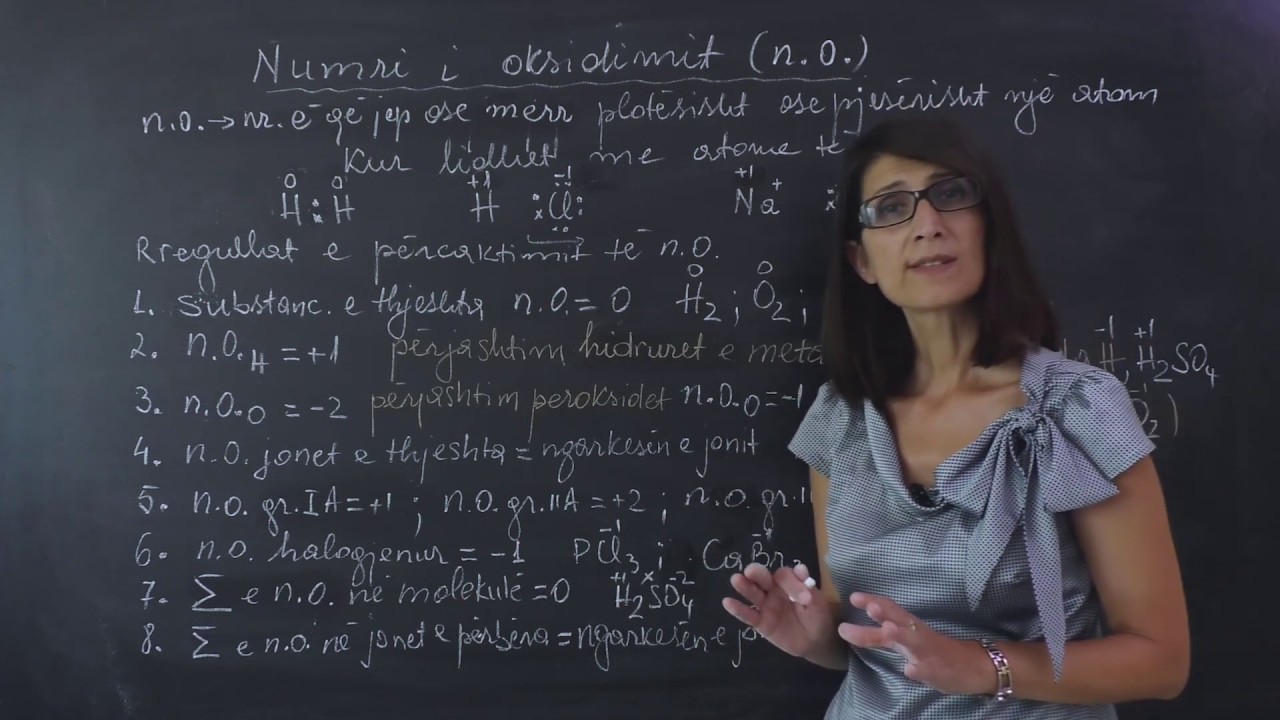 Numri i oksidimit (n.O.)
n.O. → nr. ē që jep ose merr plotësisht ose pjesërisht një atom
kur lidhet me atome të
0 0 +1 -1 +1
H : H H Cl Na+
Rregullat e përcaktimit të n.O.
1. Substanc. e thjeshta n.O. = 0 H₂ ; O₂ ;
2. n.O.H = +1 përjashtim hidruret e meta H⁻¹, H₂⁺¹SO₄
3. n.O.O = -2 përjashtim peroksidet n.O.O = -1 O₂)
4. n.O. jonet e thjeshta = ngarkesën e jonit
5. n.O. gr. IA = +1 ; n.O. gr. IIA = +2 ; n.O. gr. II
6. n.O. halogjenur = -1 PCl₃⁻¹ ; CaBr₂⁻¹
7. Σ e n.O. në molekulë = 0 H₂⁺¹SˣO₄⁻²
8. Σ e n.O. në jonet e përbëra = ngarkesën e jo